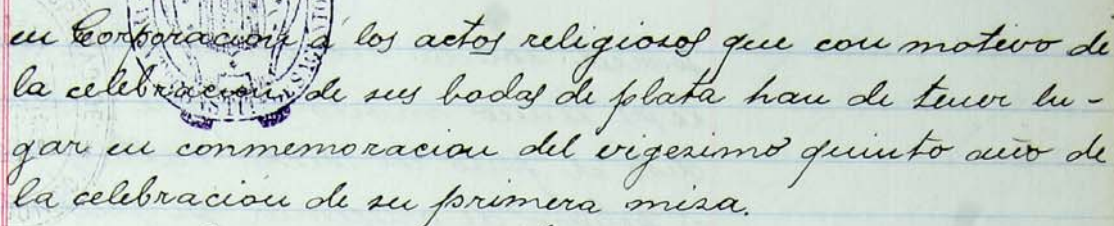 en Corporacion á los actos religiosos que con motivo de
la celebracion de sus bodas de plata han de tener lu-
gar en conmemoracion del vigesimo quinto año de
la celebracion de su primera misa.